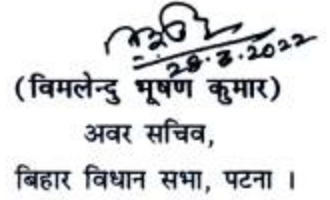 28.3.2022
(विमलेन्दु भूषण कुमार)
अवर सचिव,
बिहार विधान सभा, पटना ।